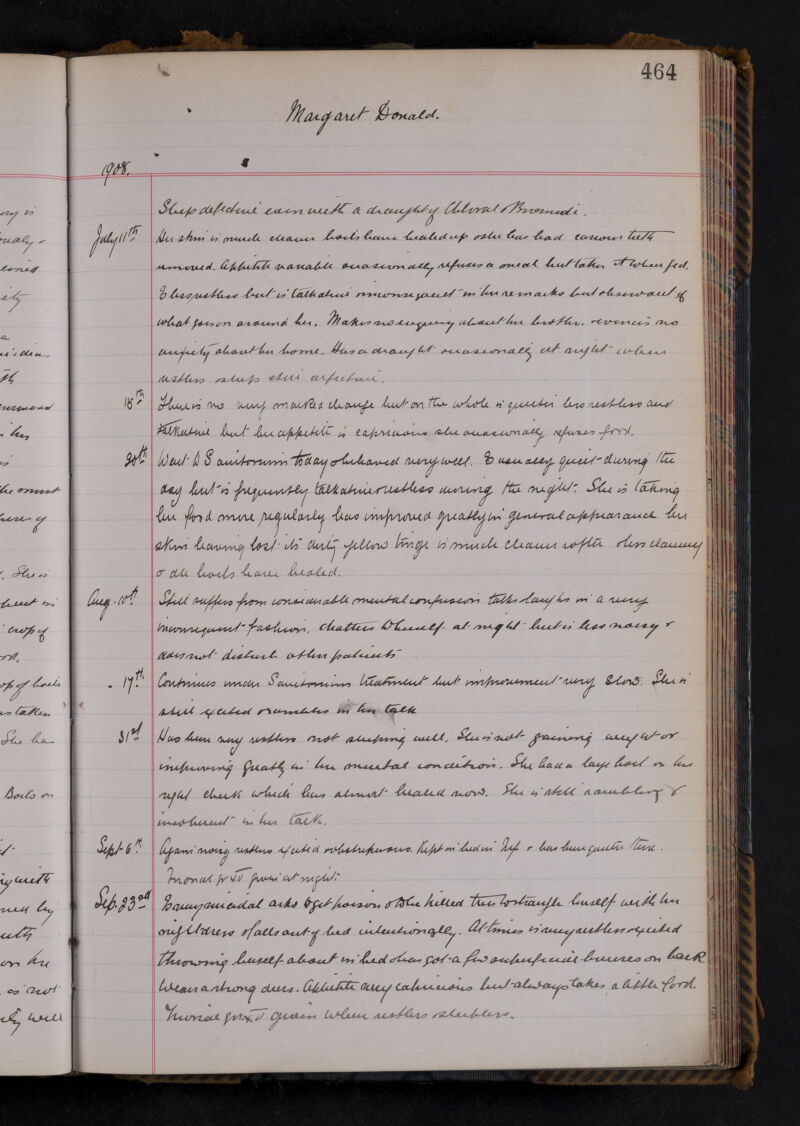 464
Margaret Donald.
1908.
Sleep defective even with a draught of Chloral & Bromide.
July 11th Her skin is much cleaner boils have healed up & she has had carious teeth
removed. Appetite variable occasionally refuses a meal but takes it when fed.
Is less restless but is talkative inconsequent in her remarks but observant of
what goes on around her. Makes no enquiry about her brother. evinces no
anxiety about her home. Has a draught occasionally at night when
restless & sleep still defective.
18th There is no very marked change but on the whole is quieter less restless and
talkative but her appetite is capricious she occasionally refuses food.
30th Went to Sanitorium today & behaved very well. Is usually quiet during the
day but is frequently talkative & restless during the night. She is taking
her food more regularly has improved greatly in general appearance her
skin having lost its dirty yellow tinge is much cleaner softer & less clammy
& all boils have healed.
Aug. 10th Still suffers from considerable mental confusion talks & laughs in a very
inconsequent fashion. chatters to herself at night but is less noisy &
does not disturb other patients
" 17th Continues under Sanitorium treatment but improvement very slow. She is
still excited & rambles in her talk
31st Has been very restless not sleeping well. She is not gaining weight or
improving greatly in her mental condition. She had a large boil on her
right cheek which has almost healed now. She is still rambling &
incoherent in her talk.
Sept 6th Again noisy restless excited & obstreperous. Kept in bed in & has been quieter there.
Trional gr XV given at night.
Sep. 23rd Is very suicidal asks to get poison & to be killed tries to strangle herself with her
nightdress & falls out of bed intentionally. At times is very restless & excited
throwing herself about in bed & has got a few superficial bruises on back
Wears a strong dress. Appetite very capricious but always takes a little food.
Trional gr XV given when restless & sleepless.